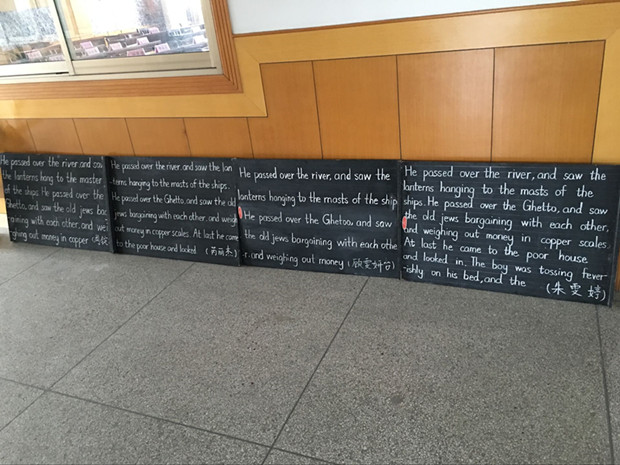 He passed over the river, and saw
the lanterns hang to the master
of the ships. He passed over the
Ghetto, and saw the old jews bar
gaining with each other, and we
ighing out money in copper
He passed over the river, and saw the lan
-terns hanging to the masts of the ships.
He passed over the Ghetto, and saw the old
jews bargaining with each other, and weigh
out money in copper scales. At last he came
to the poor house and looked
He passed over the river, and saw the
lanterns hanging to the masts of the ship
He passed over the Ghetoo, and saw
the old jews bargaining with each othe
-r, and weighing out money (顾雯科台)
He passed over the river, and saw the
lanterns hanging to the masts of the
ships. He passed over the Ghetto, and saw
the old jews bargaining with each other,
and weighing out money in copper scales.
At last he came to the poor house
and looked in. The boy was tossing fever
-ishly on his bed, and the (朱雯婷)